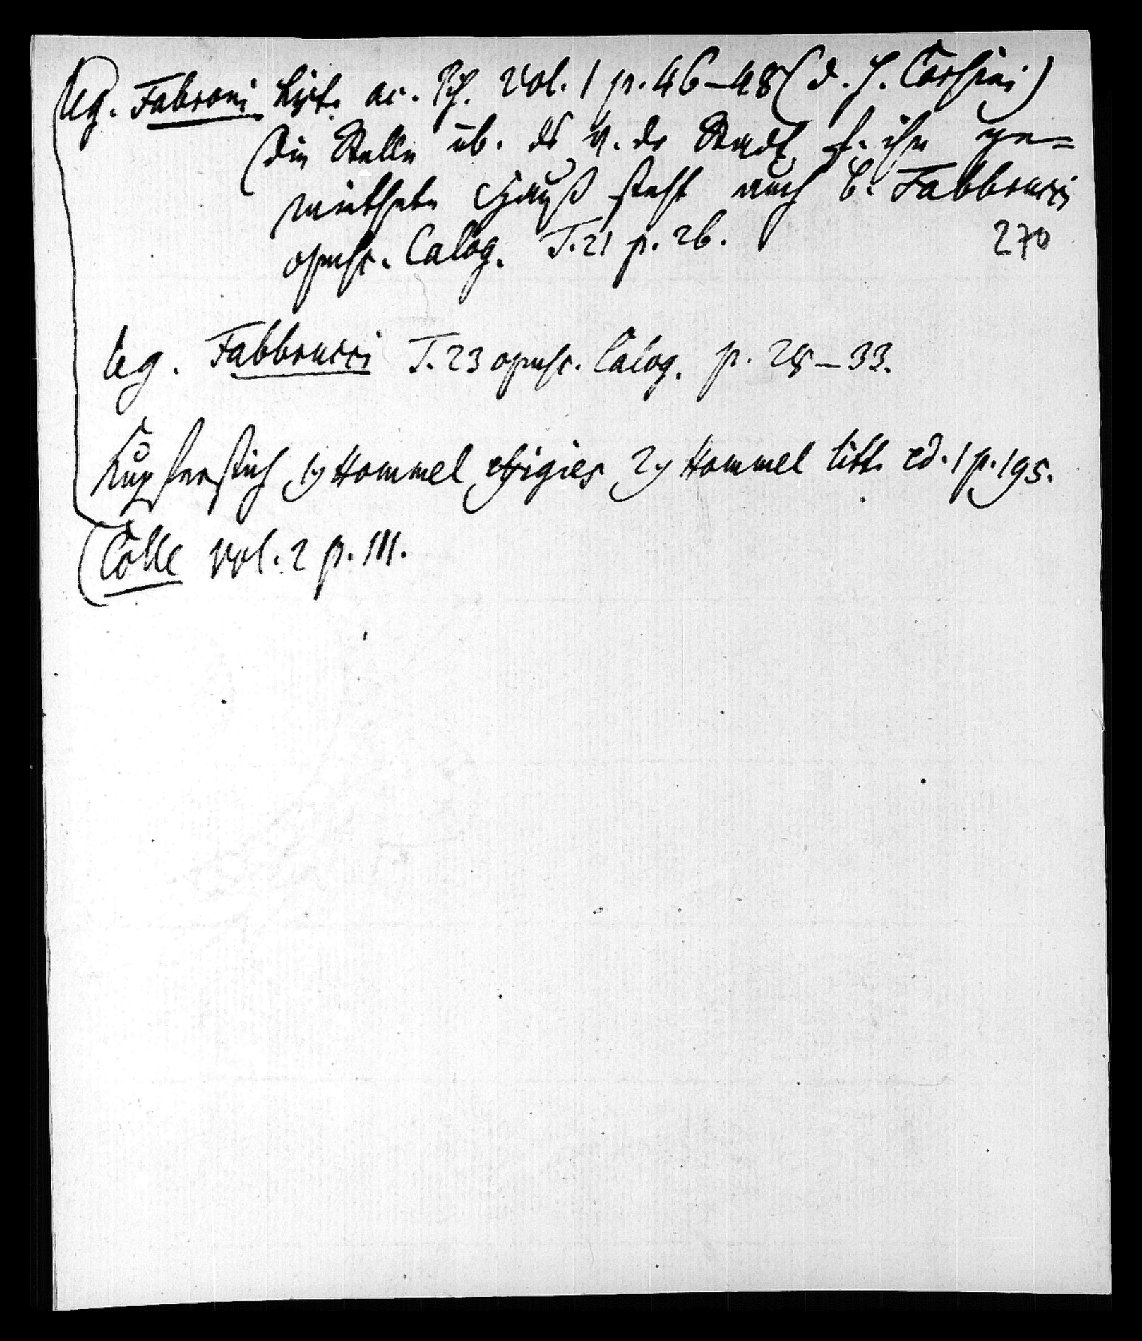 leg. Fabroni hist. ac. Pis. Vol. 1 p. 46–48 (d. h. Corsini)
(Die Stelle üb. ds v. dr Stadt f. ihn ge=
miethete Hauß steht auch b. Fabbrucci
opusc. Calog. T. 21 p. 26.
270
leg. Fabbrucci T. 23 opusc. Calog. p. 28–33.
Kupferstich 1) Hommel effigies 2) Hommel litt. ed. 1 p. 195.
(Colle vol. 2 p. 111.